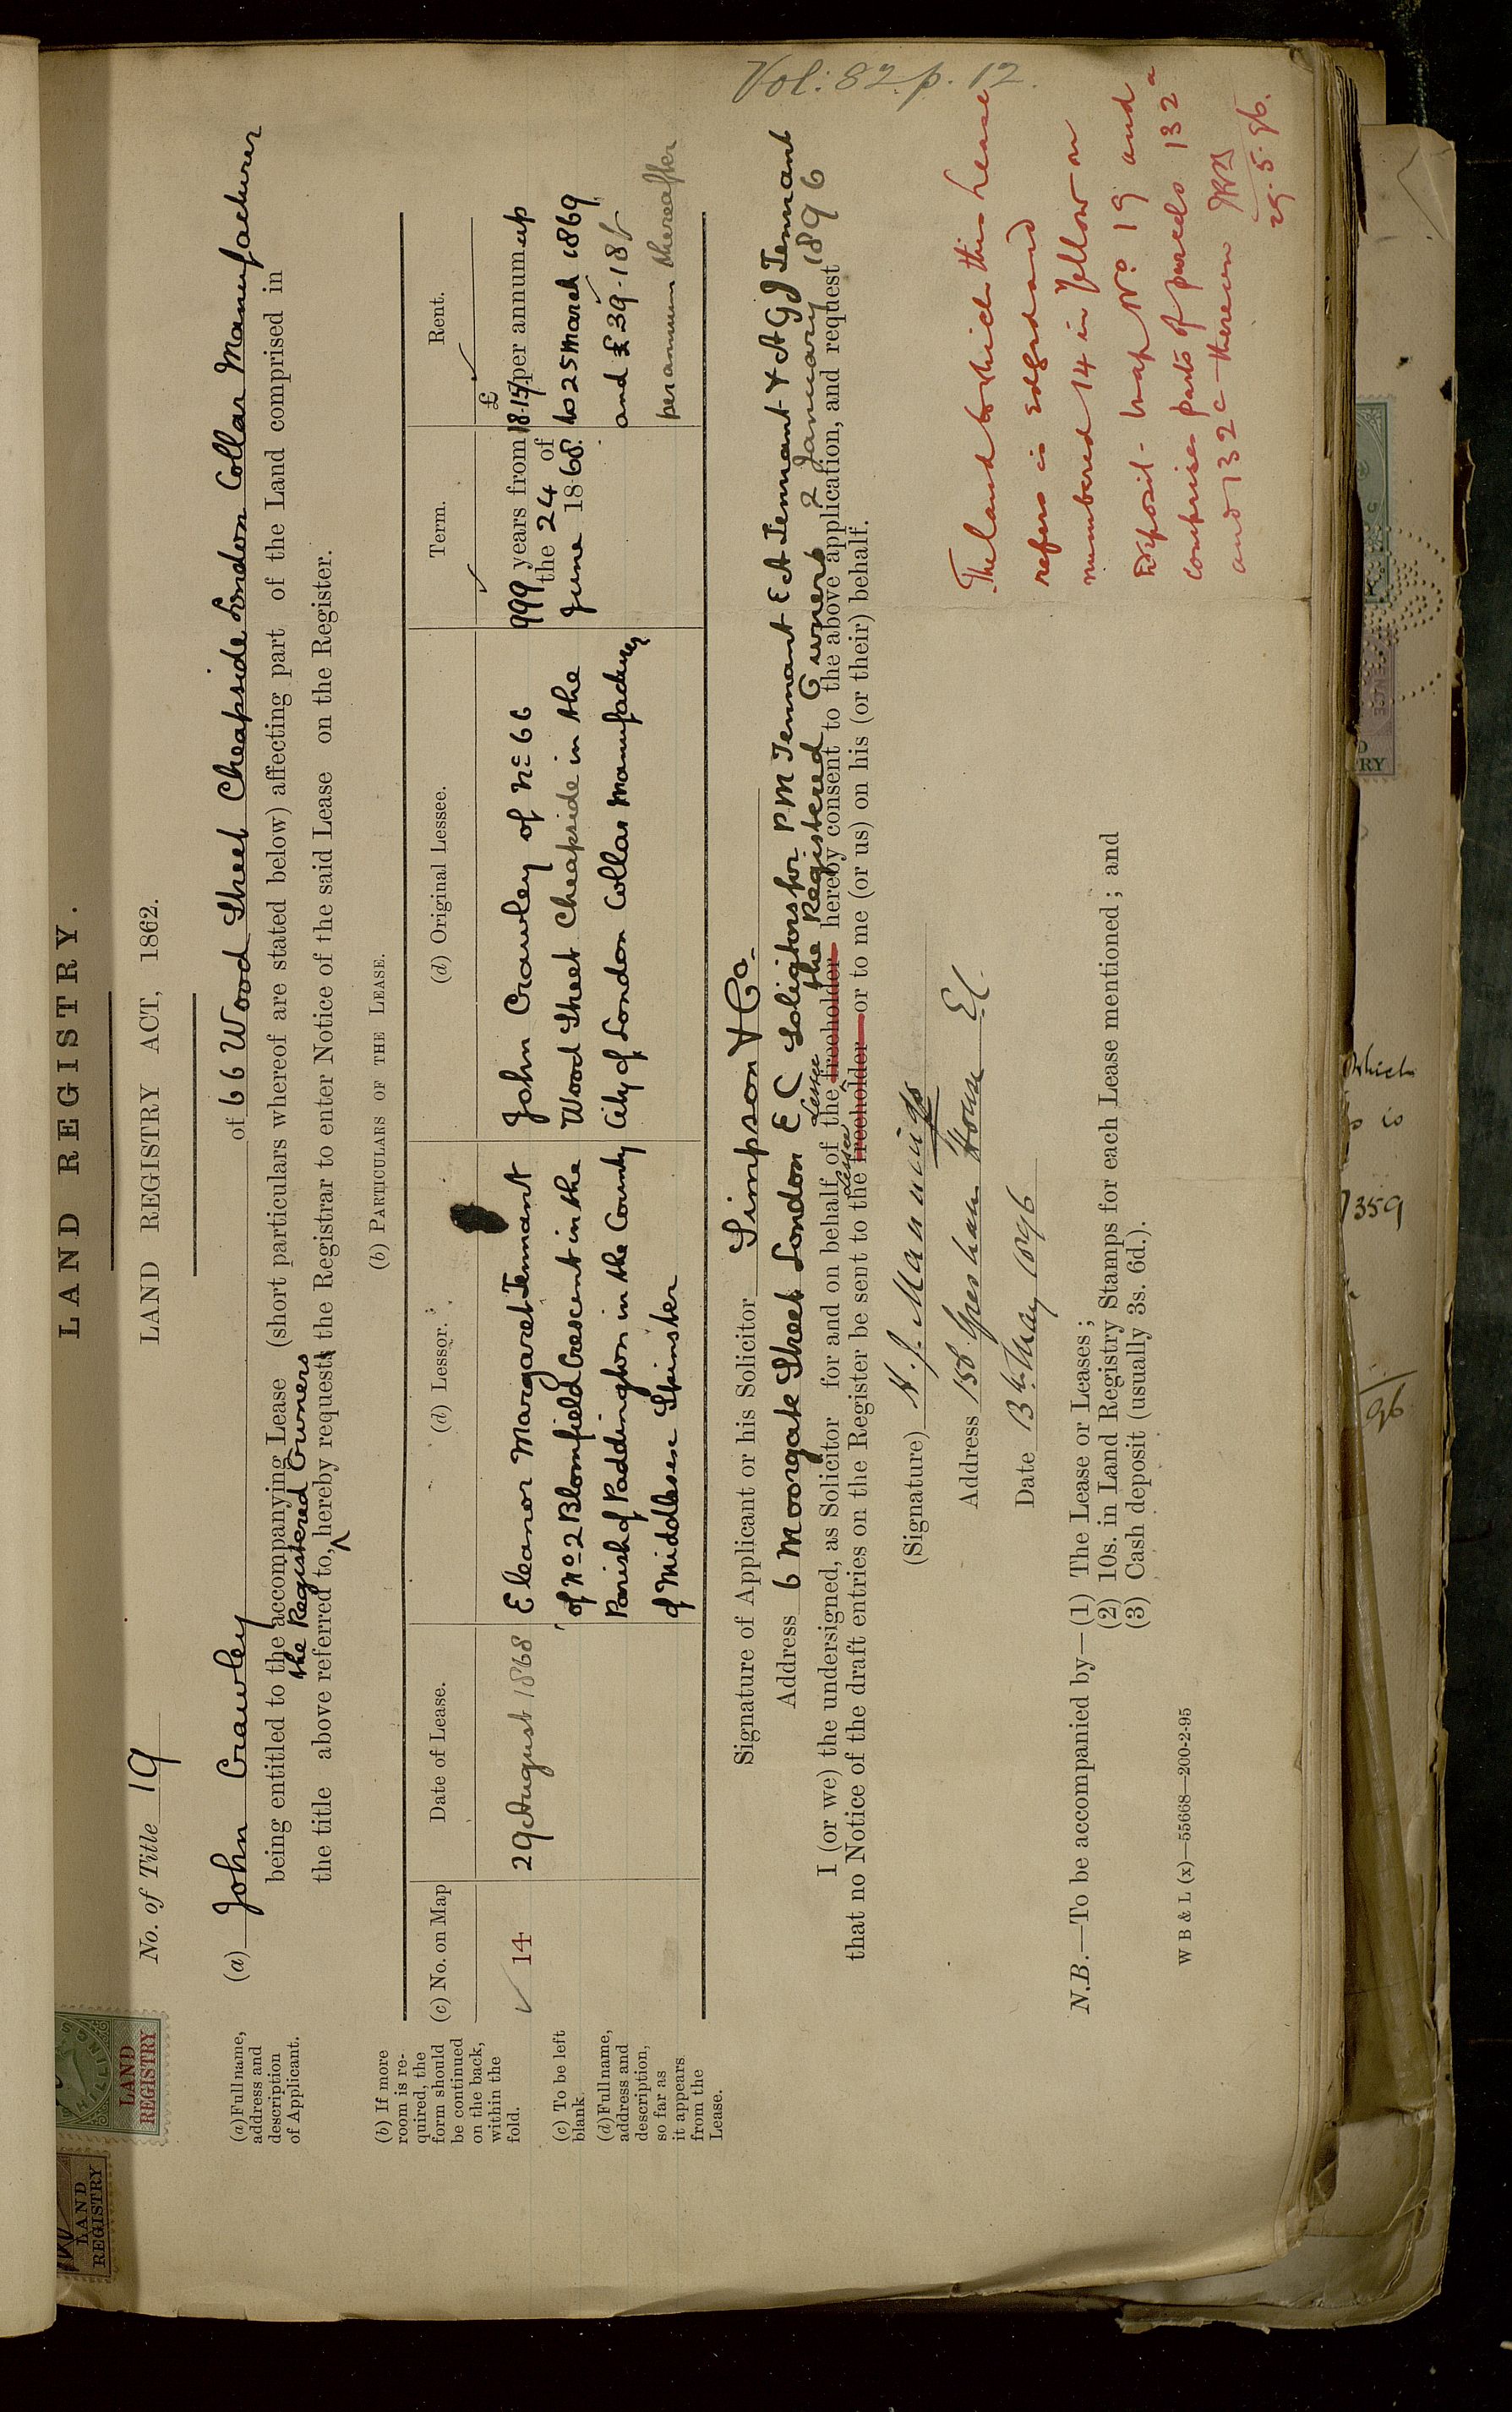 Vol: 82. p. 12.
LAND REGISTRY.
LAND REGISTRY ACT, 1862.
No. of Title 19
(a) John Crawley of 66 Wood Street Cheapside London Collar Manufacturer
being entitled to the accompanying Lease (short particulars whereof are stated below) affecting part of the Land comprised in
the Registered Owners
the title above referred to, hereby requests the Registrar to enter Notice of the said Lease on the Register.
(a) Full name,
address and
description
of Applicant.
(b) PARTICULARS OF THE LEASE.
(b) If more
room is re-
quired, the
form should
be continued
on the back,
within the
fold.
(c) To be left
blank.
(d) Full name,
address and
description,
so far as
it appears
from the
Lease.
(c) No. on Map
14
Date of Lease.
29 August 1868
(d) Lessor.
Eleanor Margaret Tennant
of No 2 Blomfield Crescent in the
Parish of Paddington in the County
of Middlesex Spinster
(d) Original Lessee.
John Crawley of No 66
Wood Street Cheapside in the
City of London Collar Manufacturer
Term.
999 years from
the 24 of
June 1868.
Rent.
£
18.15/ per annum up
to 25 March 1869
and £39-18/
per annum thereafter
Signature of Applicant or his Solicitor Simpson & Co.
Address 6 Moorgate Street London E C Solicitors for P M Tennant E A Tennant & A G J Tennant
the Registered Owners 2 January 1896
Lessee
I (or we) the undersigned, as Solicitor for and on behalf of the freeholder hereby consent to the above application, and request
Lessee
that no Notice of the draft entries on the Register be sent to the freeholder or to me (or us) on his (or their) behalf.
(Signature) H. J. Mannings
Address 158 Gresham House E.C.
Date 13th May 1896
The land to which this lease
refers is edged and
numbered 14 in Yellow on
Deposit-map No. 19 and
comprises parts of parcels 132a
and 132c therein
29.5.96.
N.B.—To be accompanied by—(1) The Lease or Leases;
(2) 10s. in Land Registry Stamps for each Lease mentioned; and
(3) Cash deposit (usually 3s. 6d.).
W B & L (x)—55668—200-2-95
LAND
REGISTRY
LAND
REGISTRY
which
is
359
96
RY